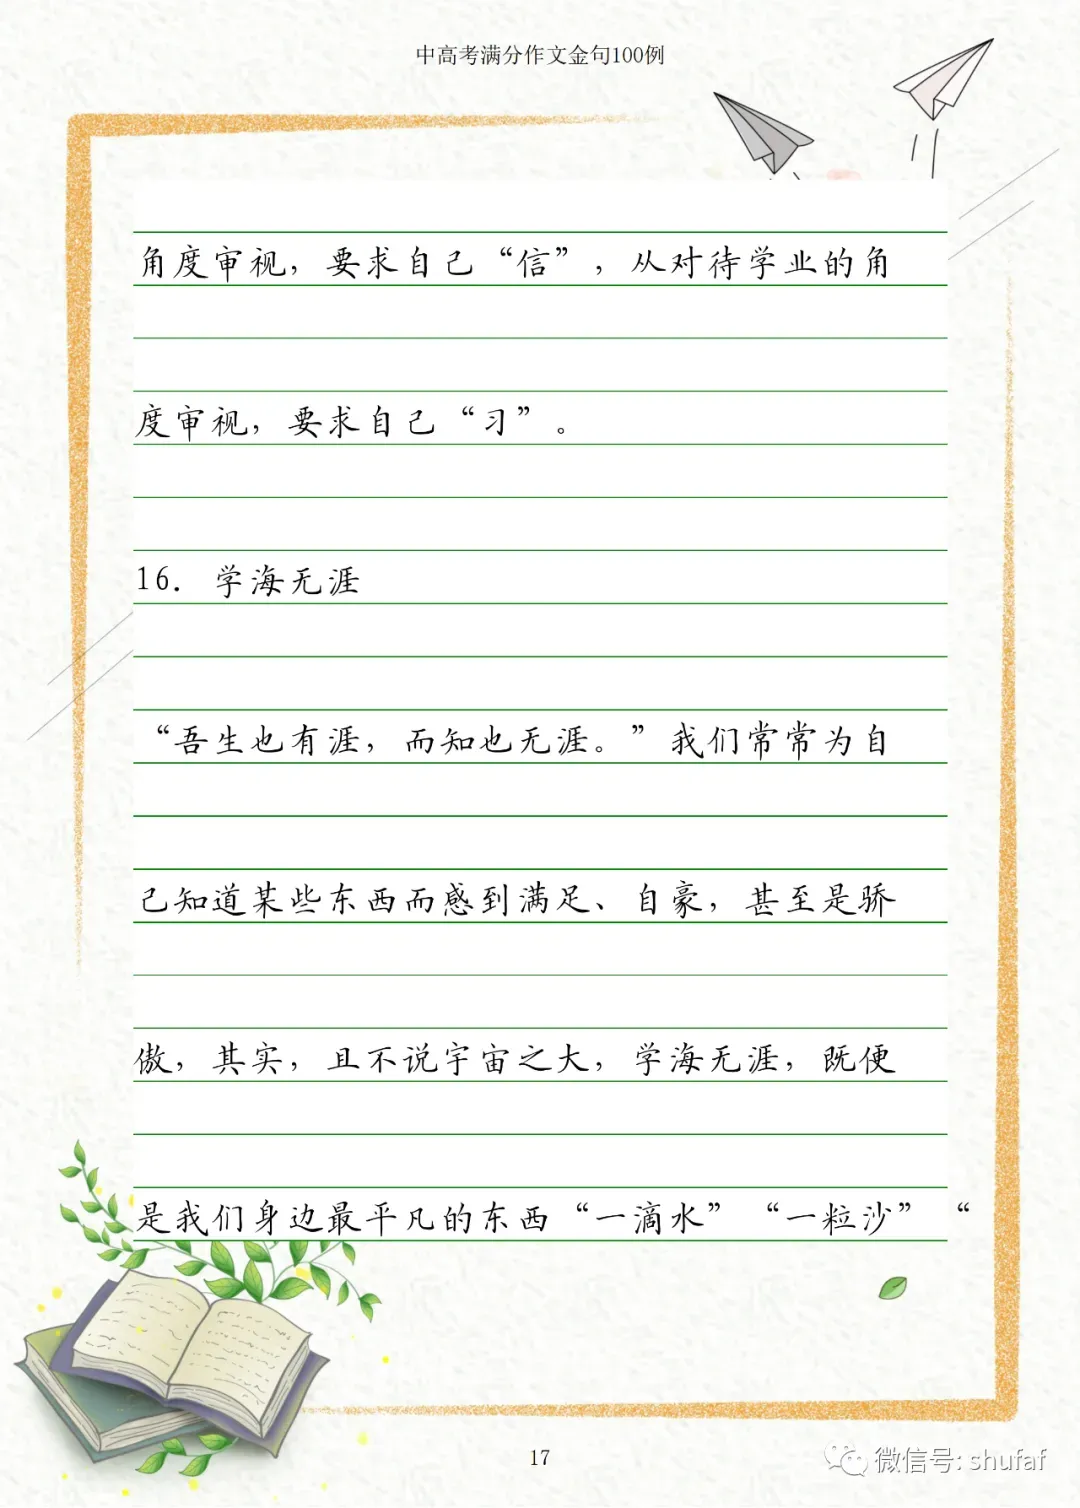 中高考满分作文金句100例
角度审视，要求自己“信”，从对待学业的角
度审视，要求自己“习”。
16. 学海无涯
“吾生也有涯，而知也无涯。”我们常常为自
己知道某些东西而感到满足、自豪，甚至是骄
傲，其实，且不说宇宙之大，学海无涯，既便
是我们身边最平凡的东西“一滴水”“一粒沙”“
17
微信号: shufaf